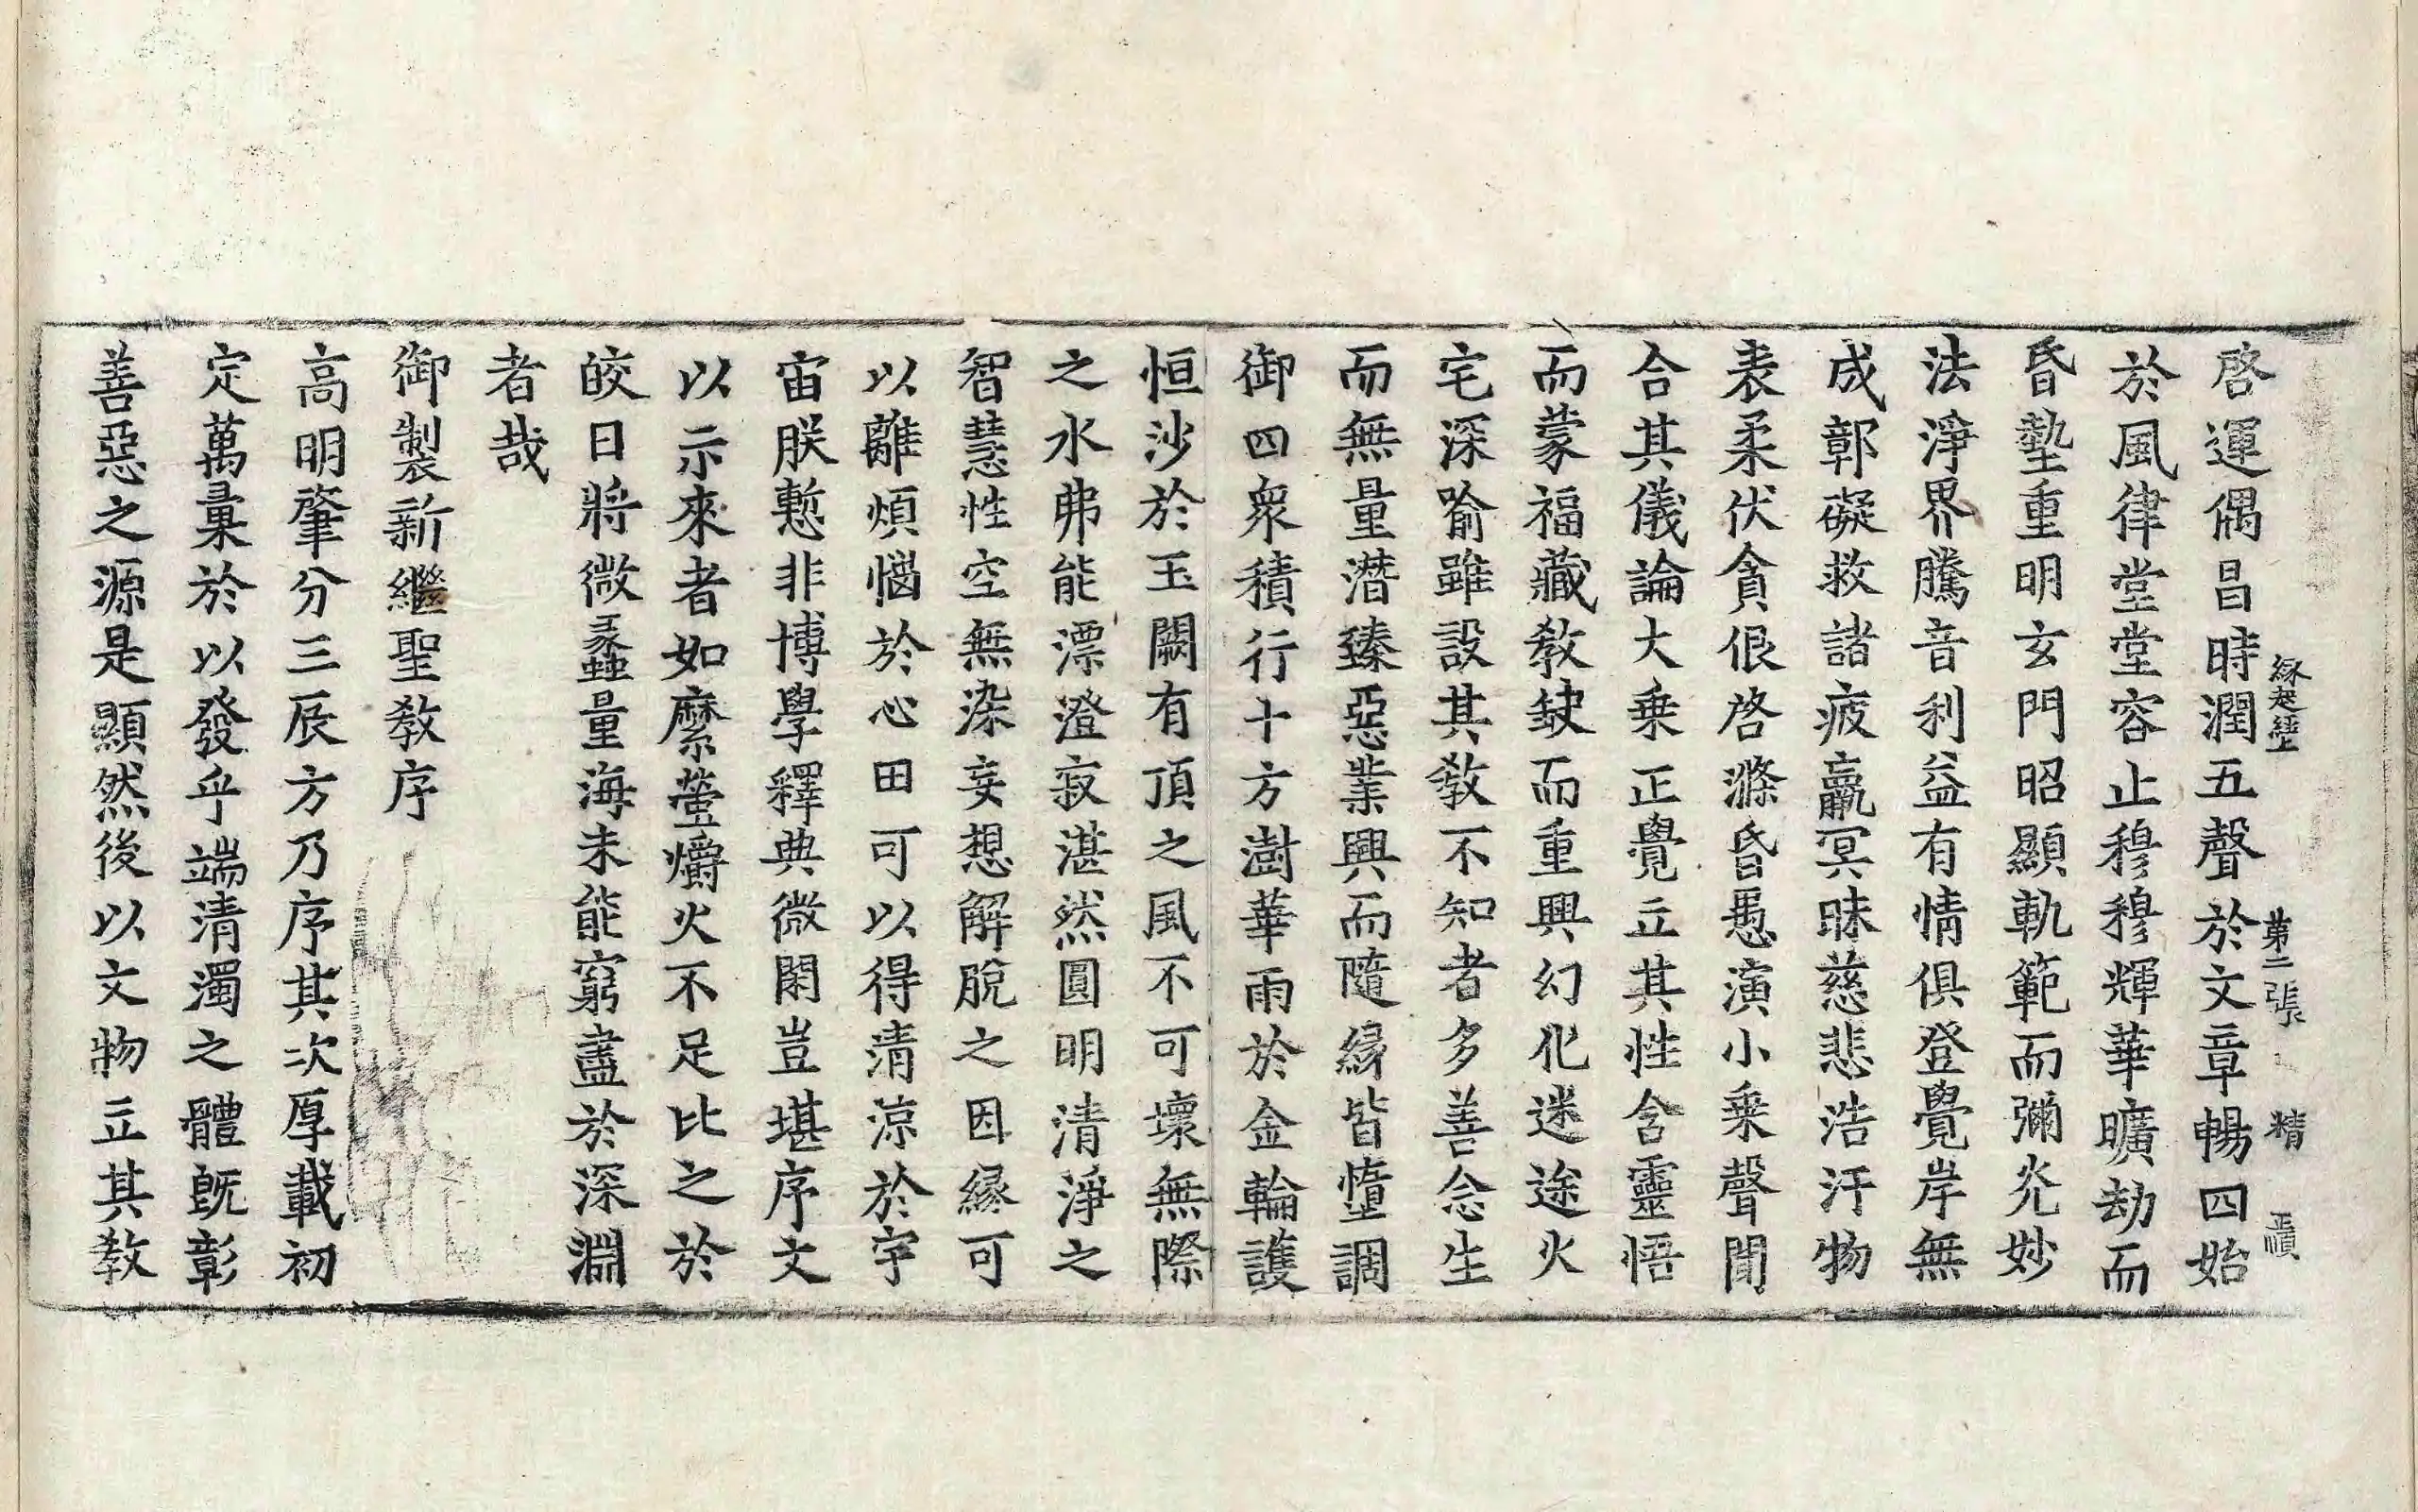 緣起經 第二張 精
啓運偶昌時潤五聲於文章暢四始
於風律堂堂容止穆穆輝華曠劫而
昏墊重明玄門昭顯軌範而彌光妙
法淨界騰音利益有情俱登覺岸無
成鄣礙救諸疲羸冥昧慈悲浩汗物
表柔伏貪佷啓滌昏愚演小乘聲聞
合其儀論大乘正覺立其性含靈悟
而蒙福藏教缺而重興幻化迷途火
宅深喻雖設其教不知者多善念生
而無量潛臻惡業興而隨緣皆墮調
御四衆積行十方澍華雨於金輪護
恒沙於玉闕有頂之風不可壞無際
之水弗能漂澄寂湛然圓明清淨之
智慧性空無染妄想解脫之因緣可
以離煩惱於心田可以得清涼於宇
宙朕慙非博學釋典微閑豈堪序文
以示來者如縻螢爝火不足比之於
皎日將微蠡量海未能窮盡於深淵
者哉
御製新繼聖教序
高明肇分三辰方乃序其次厚載初
定萬彙於以發乎端清濁之體旣彰
善惡之源是顯然後以文物立其教